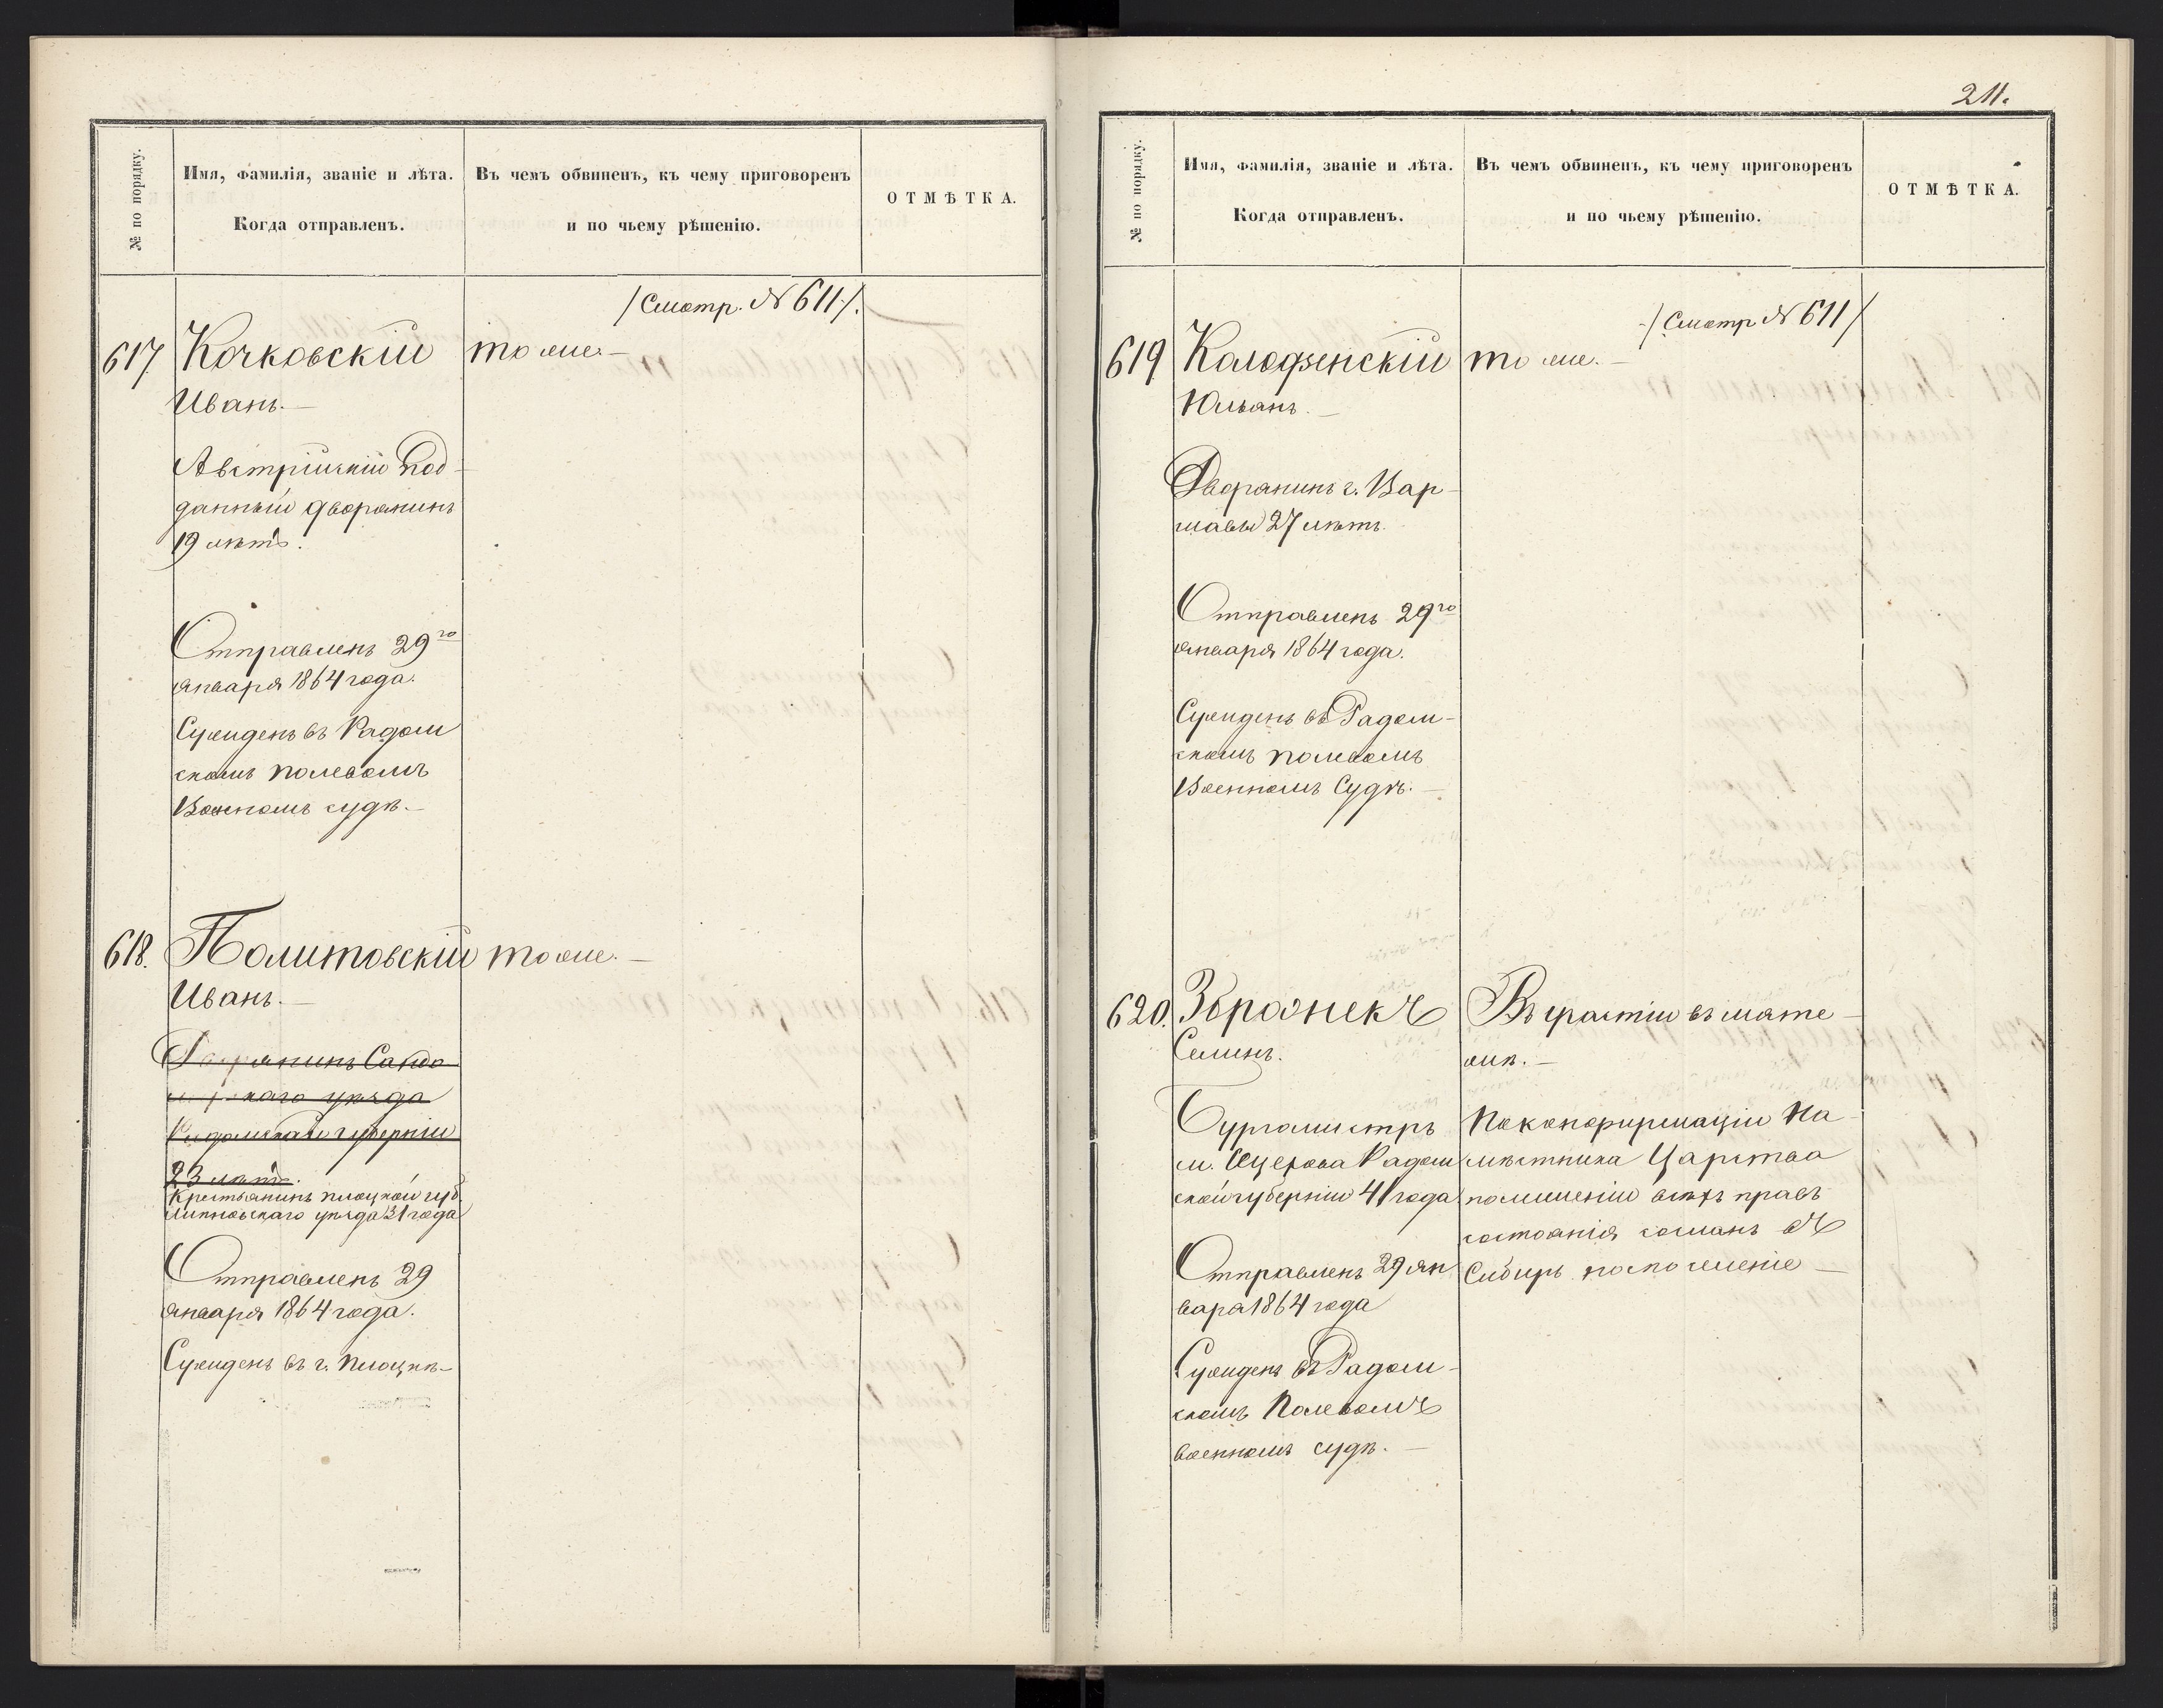 № по порядку.
Имя, фамилія, званіе и лѣта.
Когда отправленъ.
Въ чемъ обвиненъ, къ чему приговоренъ
и по чьему рѣшенію.
ОТМѢТКА.
/Смотр. № 611/.
617 Кочковскій тоже.—
Иванъ.—
Австрійскій под-
данный дворянинъ
19 лѣтъ.
Отправленъ 29го
января 1864 года.
Сужденъ въ Радом
скомъ полевомъ
Военномъ судѣ.—
618. Политовскій тоже.—
Иванъ.—
Дворянинъ Сандо
мірскаго уѣзда
Радомской губерніи
23 лѣтъ.
Крестьянинъ плоцкой губ.
липновскаго уѣзда 31 года
Отправленъ 29
января 1864 года.
Сужденъ въ г. Плоцкѣ—
211.
№ по порядку.
Имя, фамилія, званіе и лѣта.
Когда отправленъ.
Въ чемъ обвиненъ, къ чему приговоренъ
и по чьему рѣшенію.
ОТМѢТКА.
/Смотр № 611/
619 Колодзенскій тоже.—
Юльанъ.—
Дворанинъ г. Вар-
шавы 27 лѣтъ.
Отправленъ 29го
января 1864 года.
Сужденъ въ Радом-
скомъ полевомъ
Военномъ Судѣ.—
620. Збронекъ Въ участіи въ мяте-
Семинъ. жѣ.—
Бургомистръ По конфирмаціи На-
м. Радом мѣстника Царства
ской губерніи 41 года по лишеніи всѣхъ правъ
состоянія сосланъ въ
Отправленъ 29 ян Сибирь на поселеніе—
варя 1864 года
Сужденъ въ Радом-
скомъ Полевомъ
военномъ судѣ.—